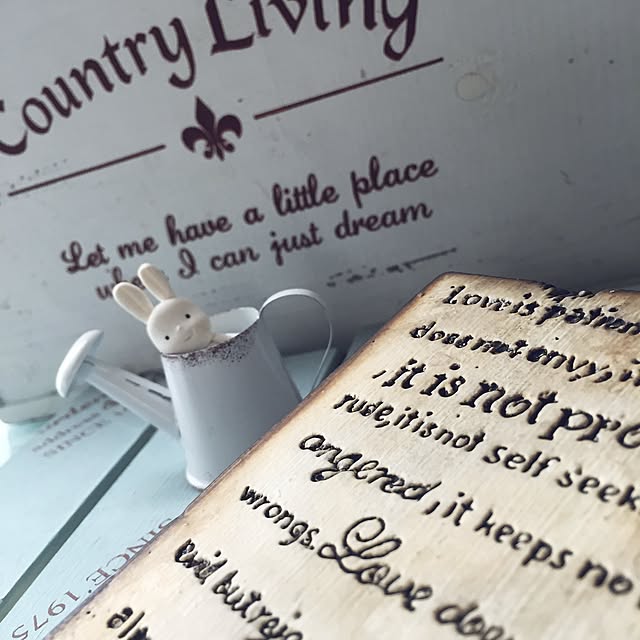 Country Living
Let me have a little place
where I can just dream
Love is patien
does not envy, i
, it is not pro
rude, it is not self seek
angered, it keeps no
wrongs. Love doe
evil but rejoi
alw
SINCE 1975